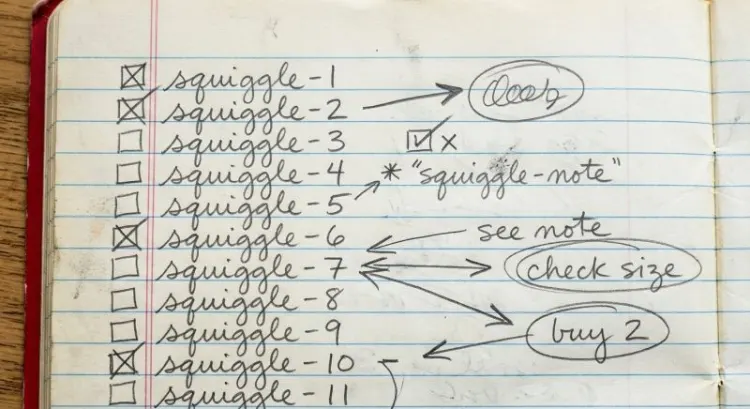 squiggle-1
squiggle-2
squiggle-3
x
squiggle-4
* "squiggle-note"
squiggle-5
squiggle-6
see note
squiggle-7
check size
squiggle-8
squiggle-9
buy 2
squiggle-10
squiggle-11